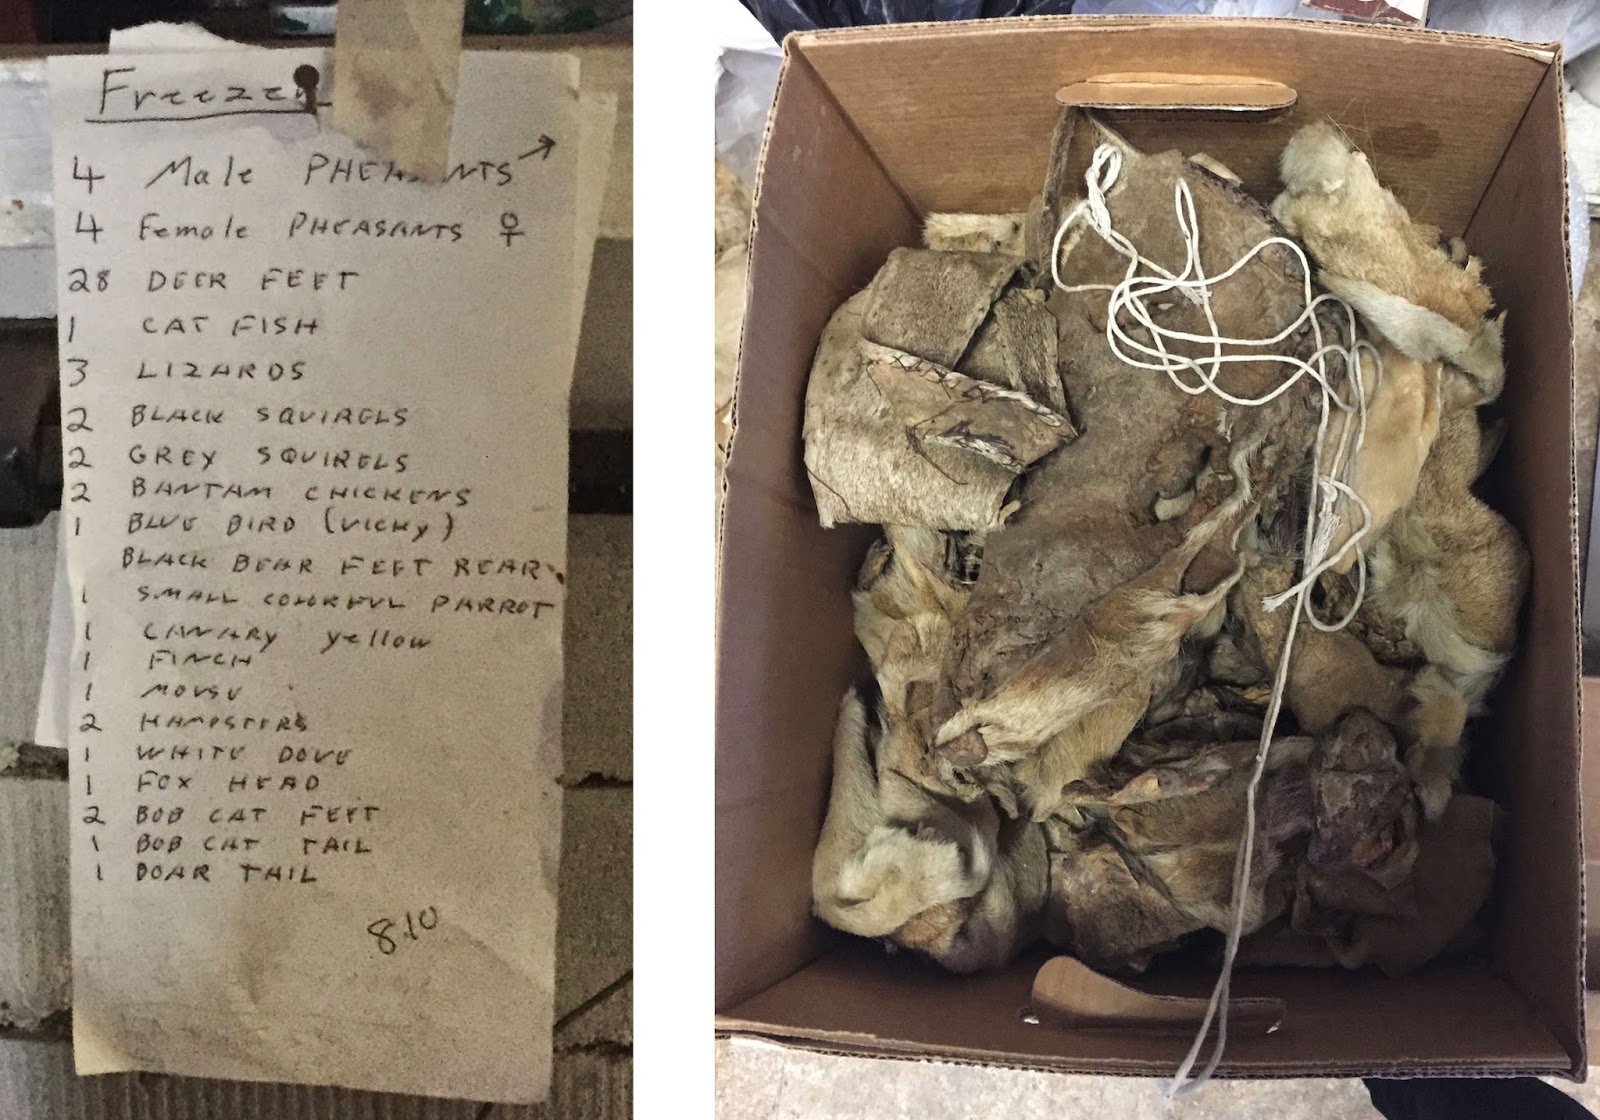 Freezer
4 Male PHEASANTS →
4 Female PHEASANTS ♀
28 DEER FEET
1 CAT FISH
3 LIZARDS
2 BLACK SQUIRELS
2 GREY SQUIRELS
2 BANTAM CHICKENS
1 BLUE BIRD (VICKY)
BLACK BEAR FEET REAR
1 SMALL COLORFUL PARROT
1 CANARY yellow
1 FINCH
1 MOUSE
2 HAMPSTERS
1 WHITE DOVE
1 FOX HEAD
2 BOB CAT FEET
1 BOB CAT TAIL
1 BOAR TAIL
8.10